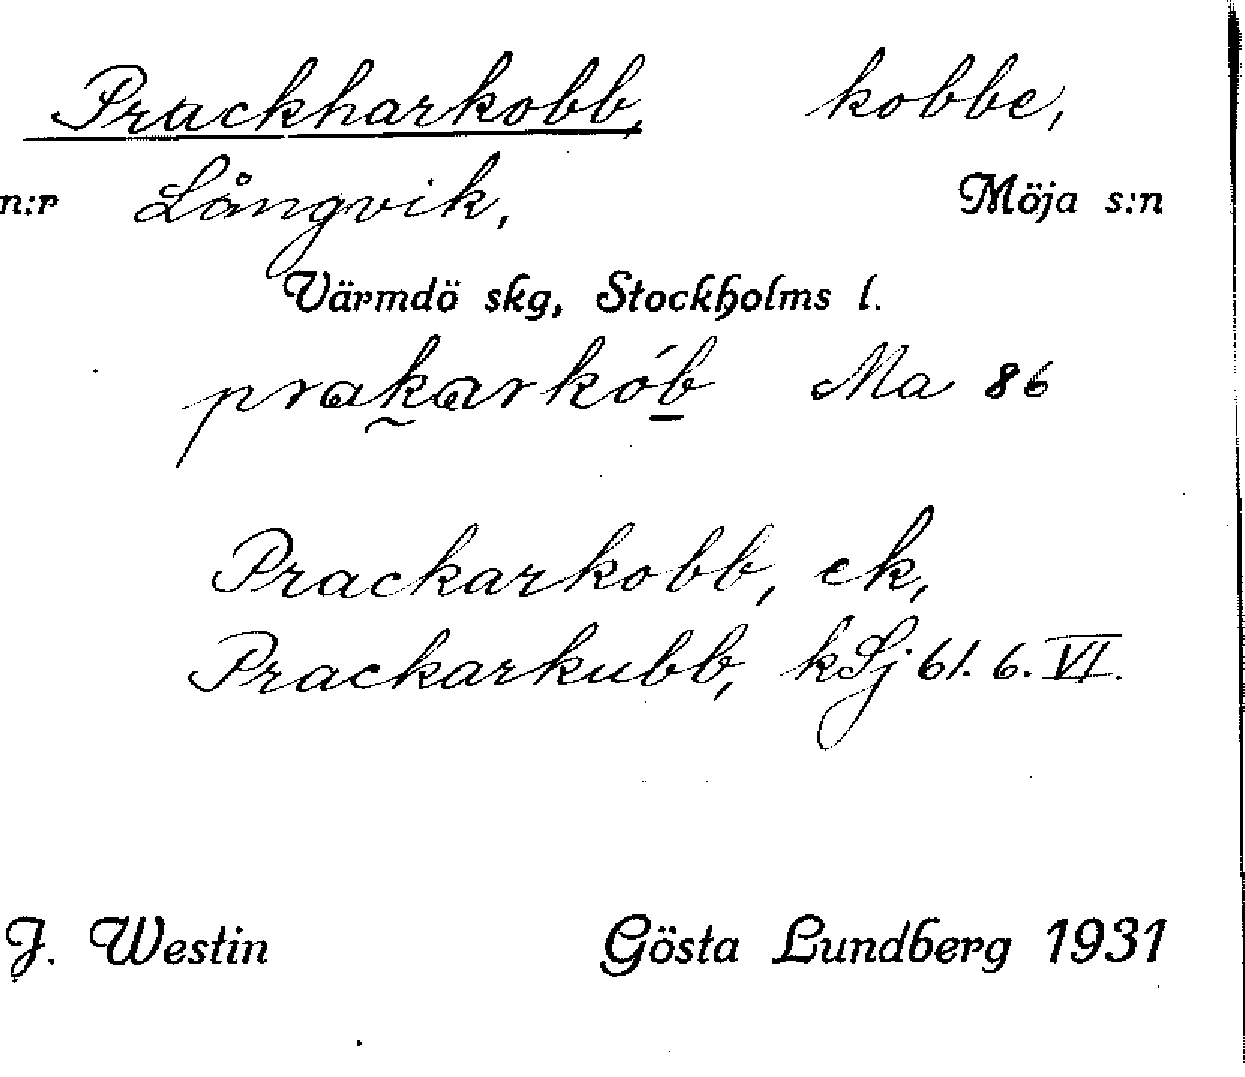 Prackharkobb, kobbe,
n:r Långvik, Möja s:n
Värmdö skg, Stockholms l.
prakarkób Ma 86
Prackarkobb, ek,
Prackarkubb, kSj 61. 6. VI.
J. Westin Gösta Lundberg 1931